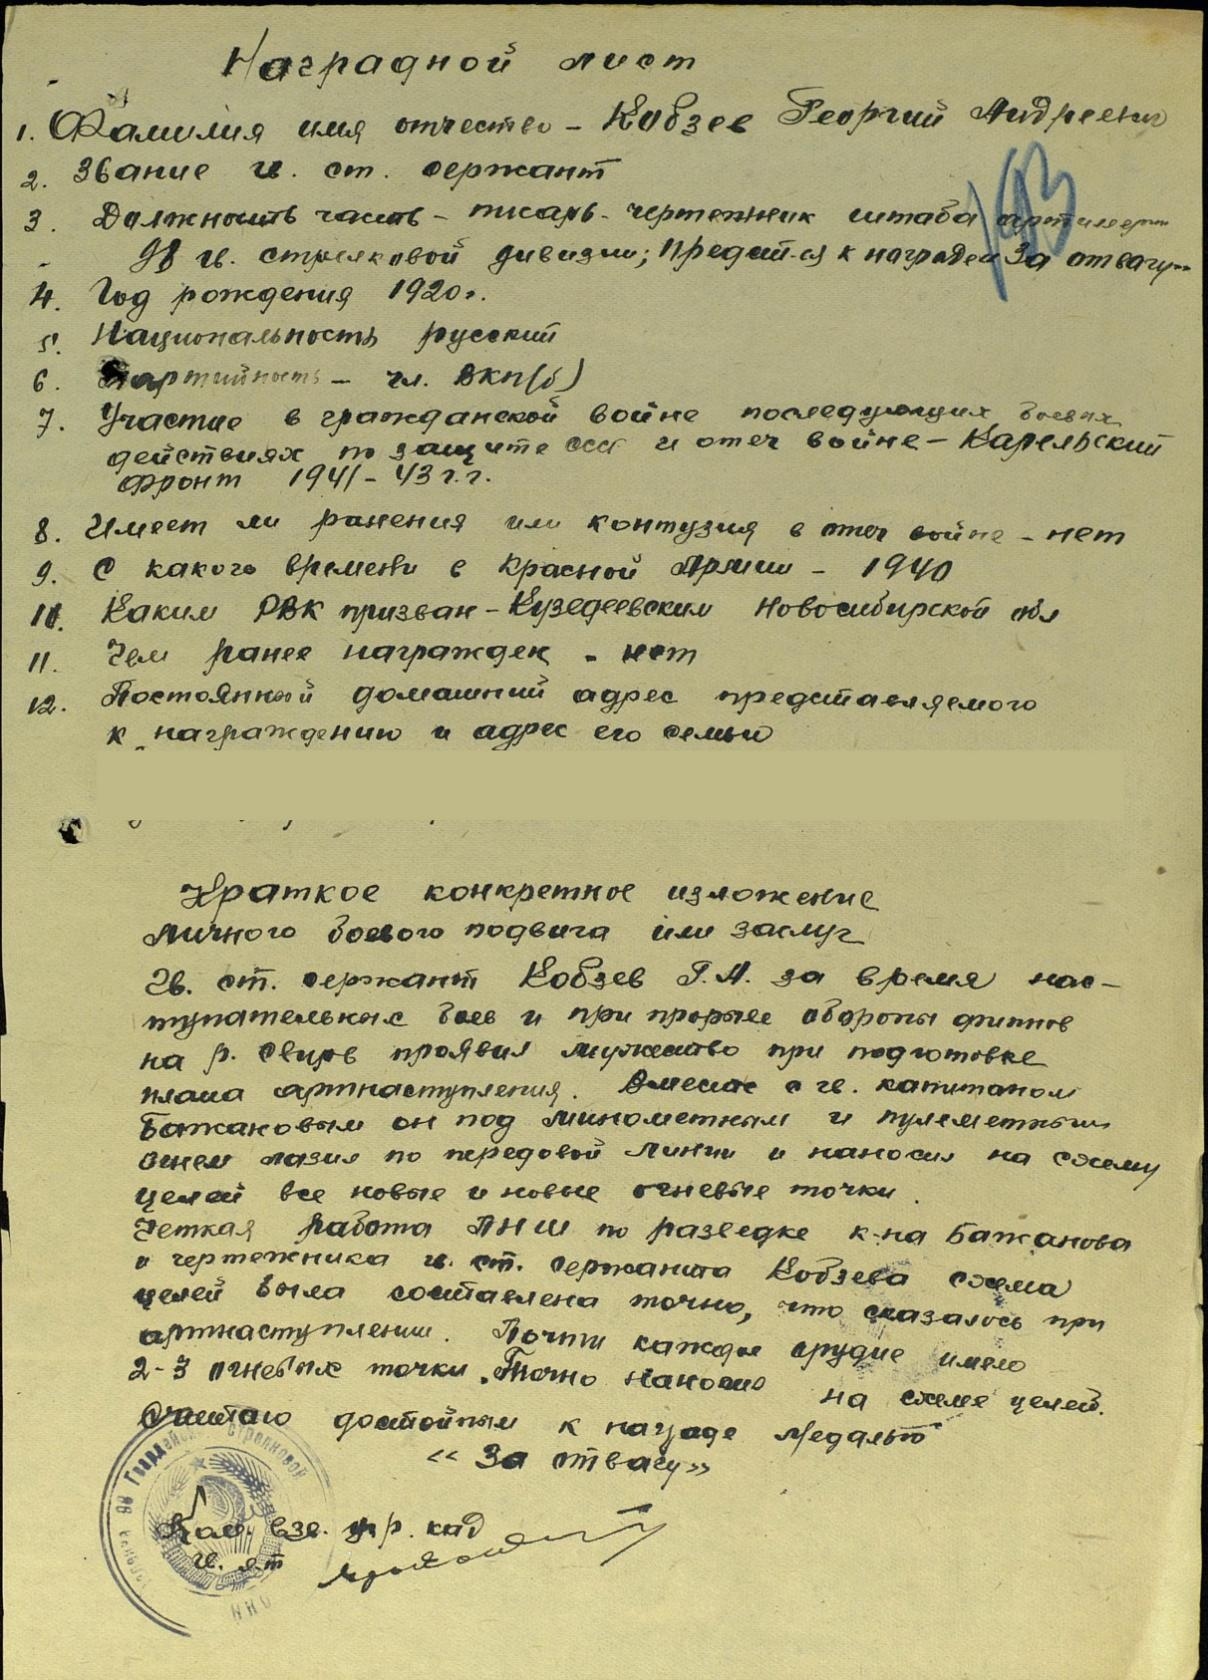 Наградной лист
1. Фамилия имя отчество - Кобзев Георгий Андреевич
2. Звание гв. ст. сержант
3. Должность часть - писарь-чертежник штаба артиллерии
98 гв. стрелковой дивизии; Предст-ся к награде "За отвагу"
4. Год рождения 1920г.
5. Национальность русский
6. Партийность - чл. ВКП(б)
7. Участие в гражданской войне последующих боевых
действиях по защите ссср и отеч войне - Карельский
фронт 1941-43 г.г.
8. Имеет ли ранения или контузия в отеч войне - нет
9. С какого времени в Красной Армии - 1940
10. Каким РВК призван - Кузедеевским Новосибирской обл
11. Чем ранее награжден - нет
12. Постоянный домашний адрес представляемого
к награждению и адрес его семьи
Краткое конкретное изложение
личного боевого подвига или заслуг
Гв. ст. сержант Кобзев Г.А. за время нас-
тупательных боев и при прорыве обороны финнов
на р. Свирь проявил мужество при подготовке
плана артнаступления. Вместе с гв. капитаном
Бажановым он под минометным и пулеметным
огнем лазил по передовой линии и наносил на схему
целей все новые и новые огневые точки.
Четкая работа ПНШ по разведке к-на Бажанова
и чертежника гв. ст. сержанта Кобзева схема
целей была составлена точно, что сказалось при
артнаступлении. Почти каждое орудие имело
2-3 огневых точки. Точно наносил на схеме целей.
Считаю достойным к награде медалью
"За отвагу"
Ком. взв. упр. кад
гв. л-т
98 Гвардейской Стрелковой